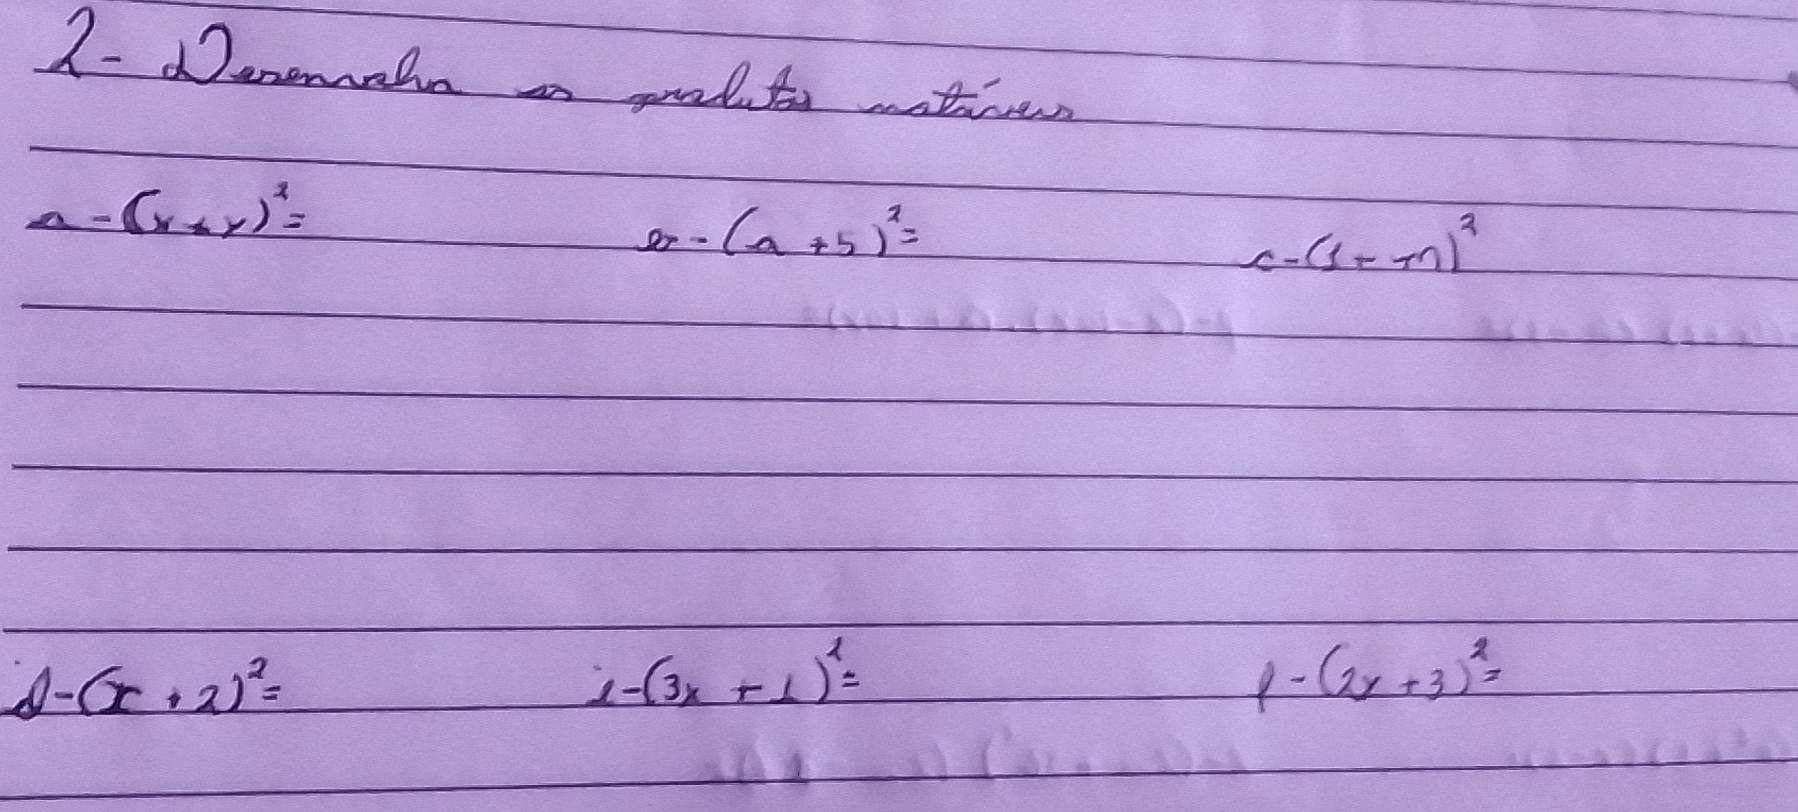 2- Desenvolva os produtos notáveis
a-(x+y)²= b-(a+5)²= c-(1+m)²
d-(x+2)²= e-(3x+1)²= f-(2x+3)²=